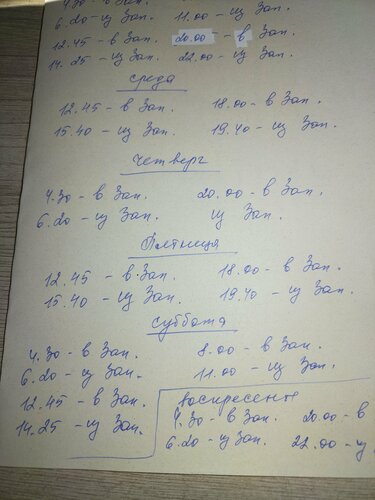 4.30 - в Зап. 8.00 - в Зап.
6.20 - из Зап. 11.00 - из Зап.
12.45 - в Зап. 20.00 - в Зап.
14.25 - из Зап. 22.00 - из Зап.
среда
12.45 - в Зап. 18.00 - в Зап.
15.40 - из Зап. 19.40 - из Зап.
четверг
4.30 - в Зап. 20.00 - в Зап.
6.20 - из Зап. из Зап.
Пятница
12.45 - в Зап. 18.00 - в Зап.
15.40 - из Зап. 19.40 - из Зап.
суббота
4.30 - в Зап. 8.00 - в Зап.
6.20 - из Зап. 11.00 - из Зап.
12.45 - в Зап.
14.25 - из Зап.
воскресенье
4.30 - в Зап. 20.00 - в
6.20 - из Зап. 22.00 - из